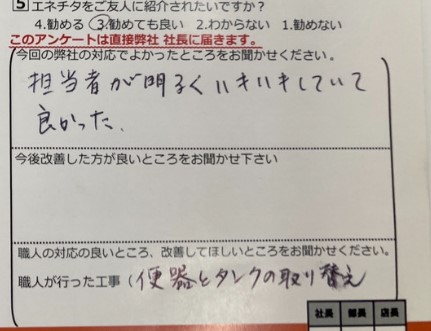 5 エネチタをご友人に紹介されたいですか?
4.勧める 3.勧めても良い 2.わからない 1.勧めない
このアンケートは直接弊社 社長に届きます。
今回の弊社の対応でよかったところをお聞かせください。
担当者が明るくいきいきしていて
良かった。
今後改善した方が良いところをお聞かせ下さい
職人の対応の良いところ、改善してほしいところをお聞かせください。
職人が行った工事(便器とタンクの取り替え
社長 部長 店長